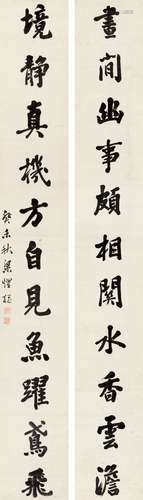 晝閒幽事頗相關水香雲澹
境靜真機方自見魚躍鳶飛
癸未秋梁燿樞